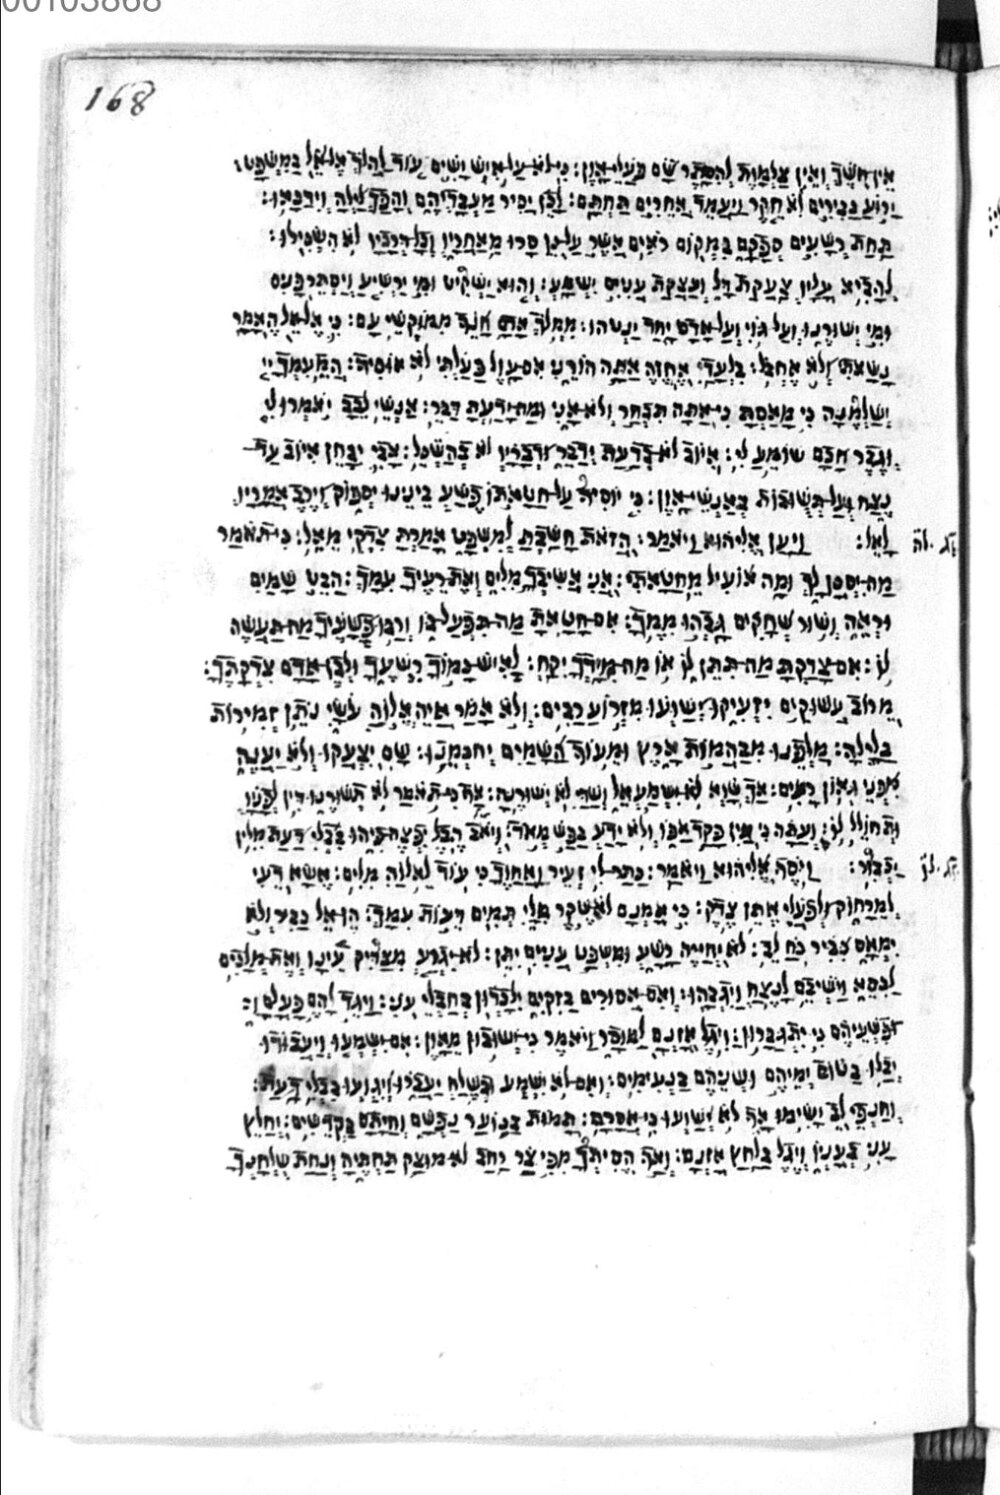 00103868
168
אין חשך ואין צלמות להסתר שם פעלי און: כי לא על איש ישים עוד להלך אל אל במשפט:
ירוע כבירים לא חקר ויעמד אחרים תחתם: לכן יכיר מעבדיהם והפך לילה וידכאו:
תחת רשעים ספקם במקום ראים אשר על כן סרו מאחריו וכל דרכיו לא השכילו:
להביא עליו צעקת דל וצעקת עניים ישמע: והוא ישקיט ומי ירשיע ויסתר פנים
ומי ישורנו ועל גוי ועל אדם יחד ממלך אדם חנף ממוקשי עם: כי אל אל האמר
נשאתי לא אחבל: בלעדי אחזה אתה הורני אם עול פעלתי לא אוסיף: המעמך
ישלמנה כי מאסת כי אתה תבחר ולא אני ומה ידעת דבר: אנשי לבב יאמרו לי
וגבר חכם שומע לי: איוב לא בדעת ידבר ודבריו לא בהשכל: אבי יבחן איוב עד
נצח על תשובות באנשי און: כי יוסיף על חטאתו פשע בינינו יספוק וירב אמריו
לאל: ויען אליהוא ויאמר: הזאת חשבת למשפט אמרת צדקי מאל: כי תאמר
לה
מה יסכן לך ומה אועיל מחטאתי: אני אשיבך מלים ואת רעיך עמך: הבט שמים
וראה ושור שחקים גבהו ממך: אם חטאת מה תפעל בו ורבו פשעיך מה תעשה
לו: אם צדקת מה תתן לו או מה מידך יקח: לאיש כמוך רשעך ולבן אדם צדקתך:
מרוב עשוקים יזעיקו ישועו מזרוע רבים: ולא אמר איה אלוה עשי נתן זמירות
בלילה: מלפנו מבהמות ארץ ומעוף השמים יחכמנו: שם יצעקו ולא יענה
מפני גאון רעים: אך שוא לא ישמע אל ושדי לא ישורנה: אף כי תאמר לא תשורנו דין לפניו
ותחולל לו: ועתה כי אין פקד אפו ולא ידע בפש מאד: ואיוב הבל יפצה פיהו בבלי דעת מלין
יכביר: ויסף אליהוא ויאמר: כתר לי זעיר ואחוך כי עוד לאלוה מלים: אשא דעי
לו
למרחוק ולפעלי אתן צדק: כי אמנם לא שקר מלי תמים דעות עמך: הן אל כביר ולא
ימאס כביר כח לב: לא יחייה רשע ומשפט עניים יתן: לא יגרע מצדיק עיניו ואת מלכים
לכסא וישיבם לנצח ויגבהו: ואם אסורים בזקים ילכדון בחבלי עני: ויגד להם פעלם
ופשעיהם כי יתגברון: ויגל אזנם למוסר ויאמר כי ישובון מאון: אם ישמעו ויעבודו
יכלו בטוב ימיהם ושניהם בנעימים: ואם לא ישמעו בשלח יעברו ויגועו בבלי דעת:
וחנפי לב ישימו אף לא ישועו כי אסרם: תמות בנוער נפשם וחיתם בקדשים: יחלץ
עני בעניו ויגל בלחץ אזנם: ואף הסיתך מפי צר רחב לא מוצק תחתיה ונחת שלחנך